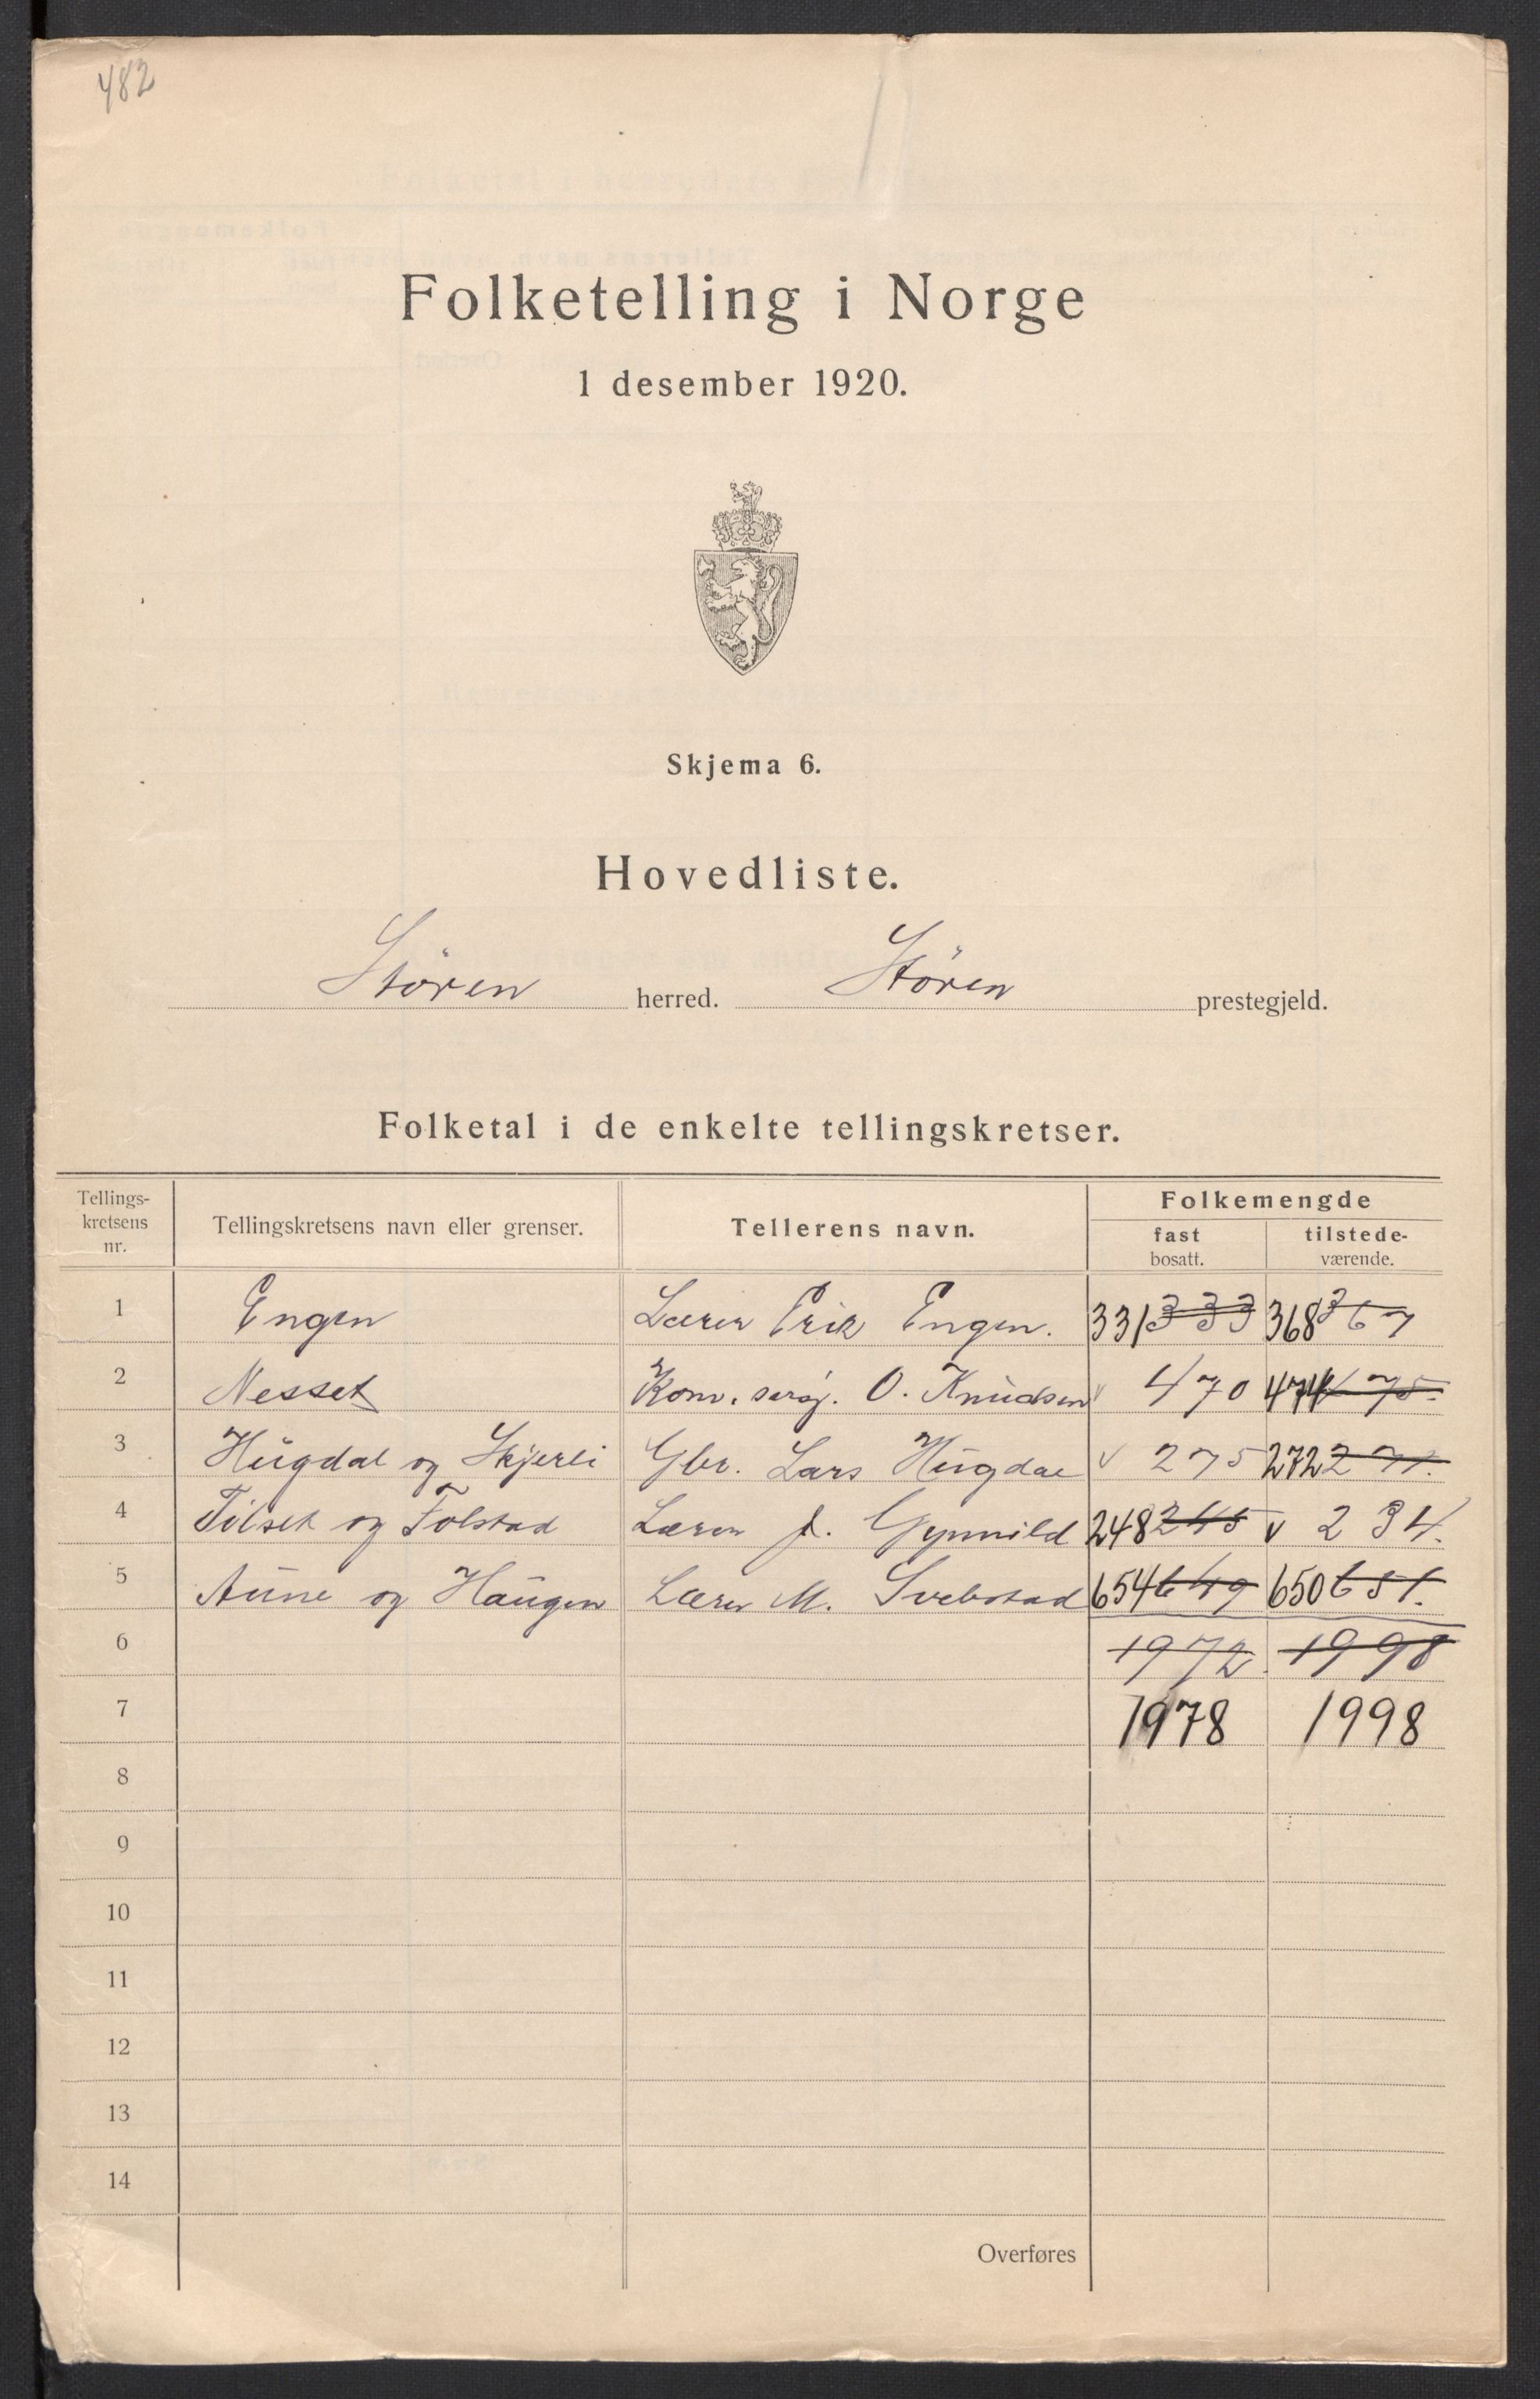 482
Folketelling i Norge
1 desember 1920.
Skjema 6.
Hovedliste.
Stören herred. Stören prestegjeld.
Folketal i de enkelte tellingskretser.
Tellings-kretsens nr. Tellingskretsens navn eller grenser. Tellerens navn. Folkemengde fast bosatt. tilstede-værende.
1 Engen Lærer Erik Engen. 331 333 368 367
2 Nesset Korn. serg. O. Knudsen v 470 474 475.
3 Hugdal og Skjerli Gbr. Lars Hugdal v 275 272 271.
4 Tilset og Folstad Lærer J. Gynnild 248 245 v 234.
5 Aune og Haugen Lærer M. Svebstad 654 649 650 651.
6 1972 1998
7 1978 1998
8
9
10
11
12
13
14
Overføres